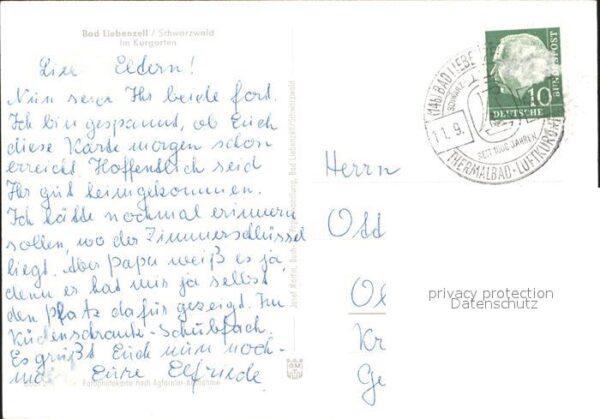 Bad Liebenzell / Schwarzwald
Im Kurgarten
Eltern!
Nun seid Ihr beide fort.
Ich bin gespannt, ob Euch
diese Karte morgen schon
erreicht. Hoffentlich seid
Ihr gut heimgekommen.
Ich hätte nochmal erinnern
sollen, wo der Zimmerschlüssel
liegt. Aber Papa weiß es ja,
denn er hat mir ja selbst
den Platz dafür gezeigt. Im
Küchenschrank-Schubfach.
Es grüßt Euch nun noch-
mal Eure Elfriede
Fotografokarte nach Agfacolor-Aufnahme
Herrn
Kr
Ge
(14b) BAD LIEBE
11.9.
SEIT 1000 JAHREN
THERMALBAD-LUFTKURORT
10
DEUTSCHE
BUNDESPOST
privacy protection
Datenschutz